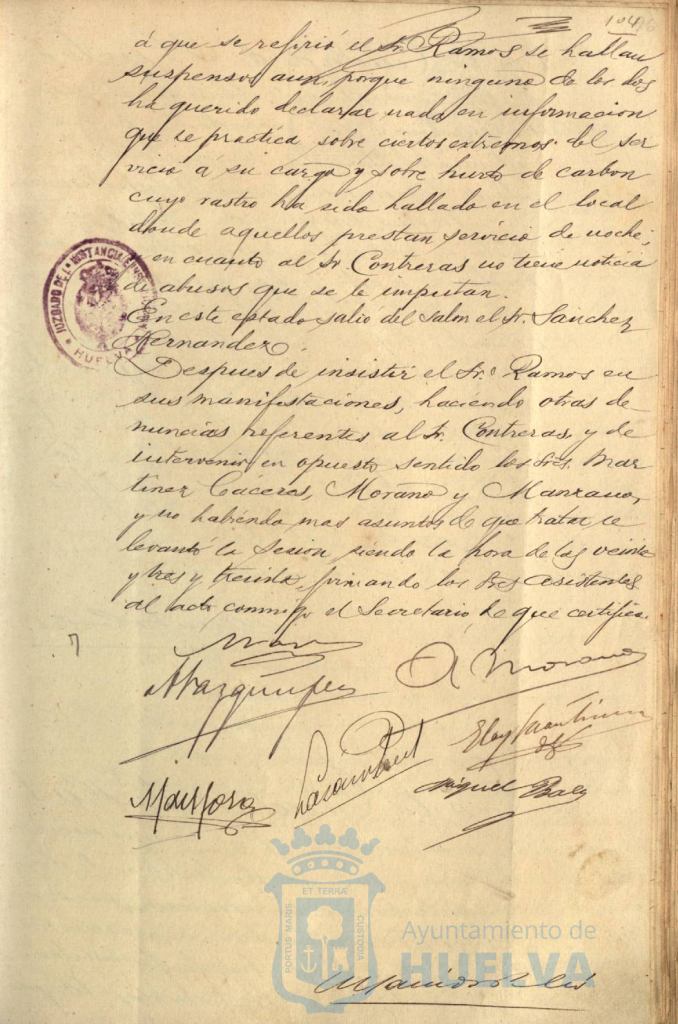 104
á que se refirió el Sr. Ramos se hallan
suspensos aun, porque ninguno de los dos
ha querido declarar nada en informacion
que se practica sobre ciertos extremos del ser
vicio á su cargo y sobre hurto de carbon
cuyo rastro ha sido hallado en el local
donde aquellos prestan servicio de noche;
y en cuanto al Sr. Contreras no tiene noticia
de abusos que se le imputan.
En este estado salio del salon el Sr. Sanchez
Hernandez.
Despues de insistir el Sr. Ramos en
sus manifestaciones, haciendo otras de
nuncias referentes al Sr. Contreras, y de
intervenir en opuesto sentido los Sres. Mar
tinez Cáceres, Morano y Manzano,
y no habiendo mas asuntos de que tratar se
levantó la sesion siendo la hora de las veinte
y tres y treinta, firmando los Sres asistentes
al acto conmigo el Secretario de que certifico.
JUZGADO DE 1ª INSTANCIA
HUELVA
A Morano
Miguel
ET TERRÆ
PORTUS MARIS
CUSTODIA
Ayuntamiento de
HUELVA